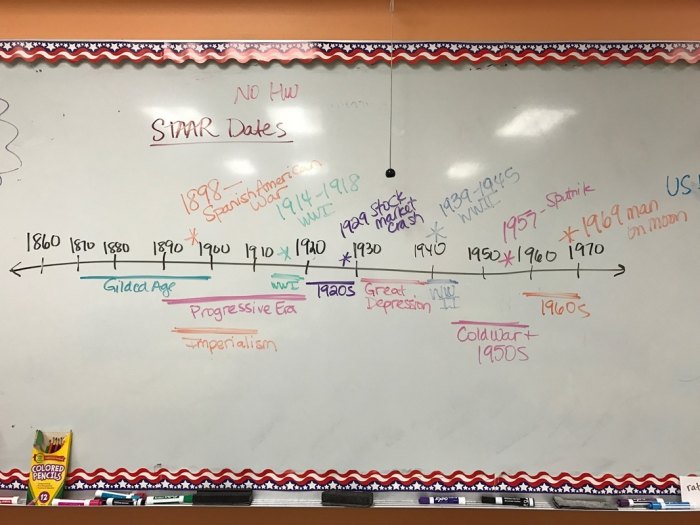 NO HW
STAAR Dates
1898 -
Spanish American
War
1914-1918
WWI
1929 Stock
market
crash
1939-1945
WWII
1957 - Sputnik
1969 man
on moon
US
1860 1870 1880 1890 1900 1910 1920 1930 1940 1950 1960 1970
Gilded Age
Progressive Era
Imperialism
WWI
1920s
Great
Depression
WW
II
Cold War +
1950s
1960s
COLORED
PENCILS
12
EXPO
rat